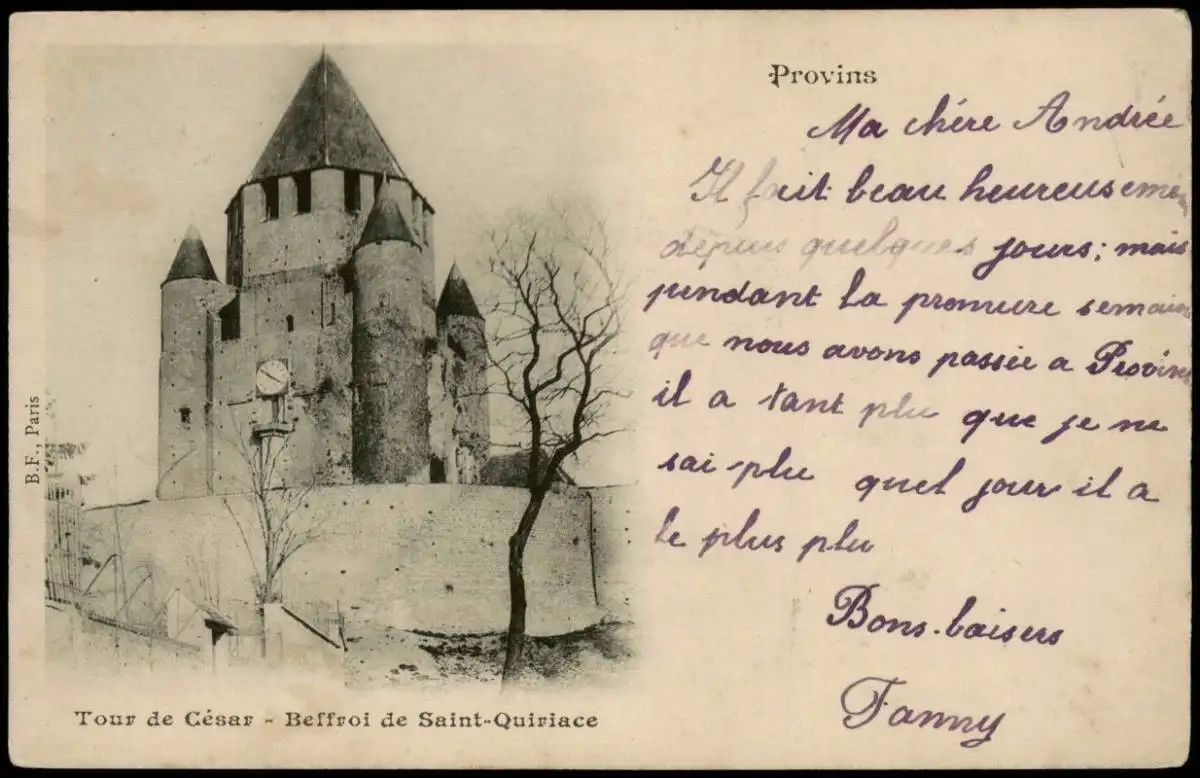 Provins
Ma chère Andrée
Il fait beau heureusemen
depuis quelques jours; mais
pendant la premiere semaine
que nous avons passée a Provins
il a tant plu que je ne
sai plu quel jour il a
le plus plu
Bons baisers
Fanny
B.F., Paris
Tour de César - Beffroi de Saint-Quiriace